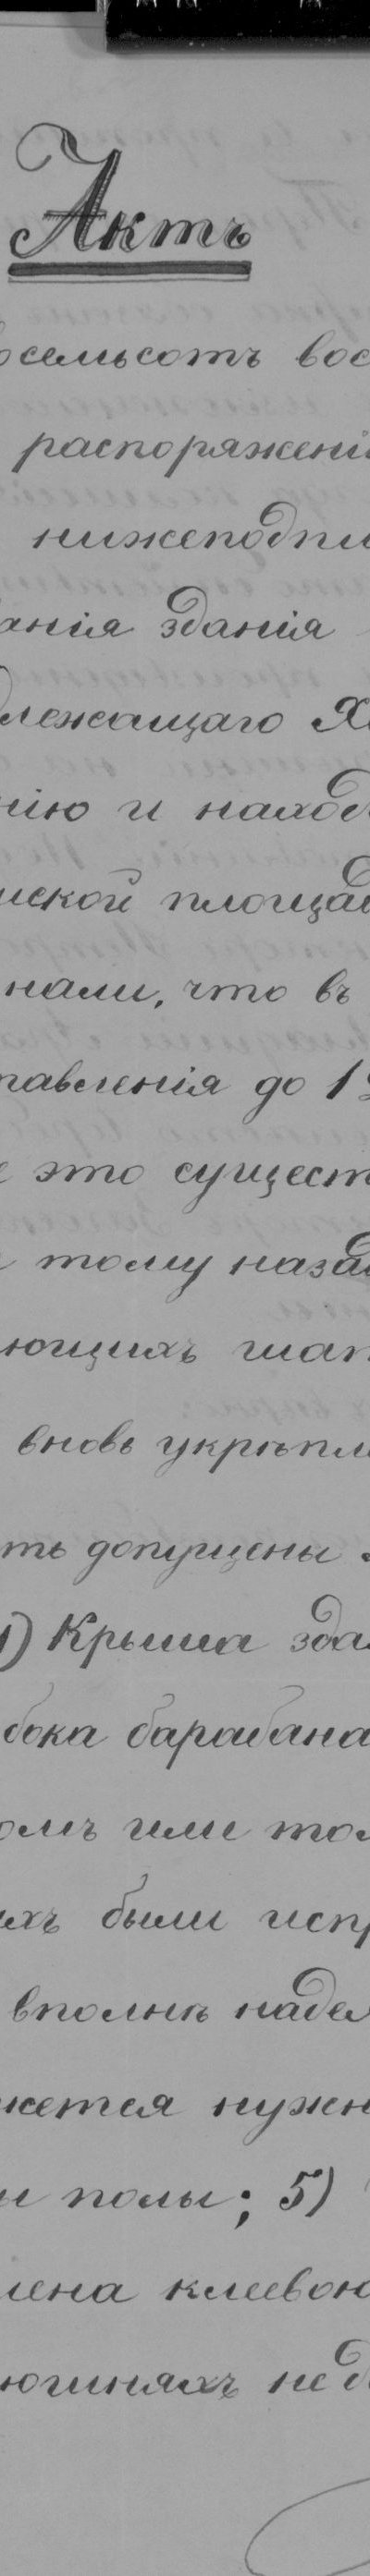 Актъ
осемьсотъ вос
распоряжені
нижеподпи
анія зданія
длежащаго Х
нію и наход
ской площад
нали, что въ
тавленія до 1
это сущест
тому назад
ющихъ шап
вновь укрѣпл
ть допущены
1) Крыша зда
бока барабана
омъ или то
ихъ были испр
вполнѣ наде
жется нужн
и полы; 5)
лена клеевою
югиняхъ не д